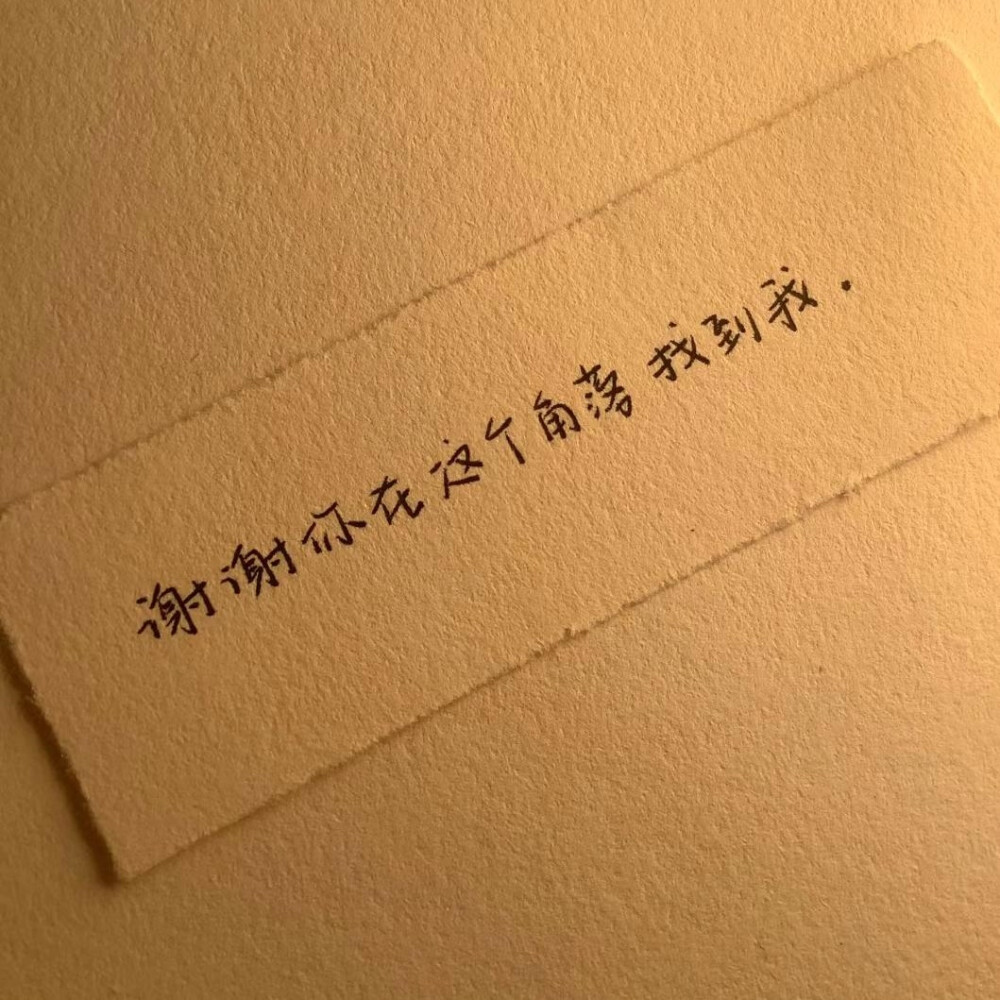 谢谢你在这个角落找到我.